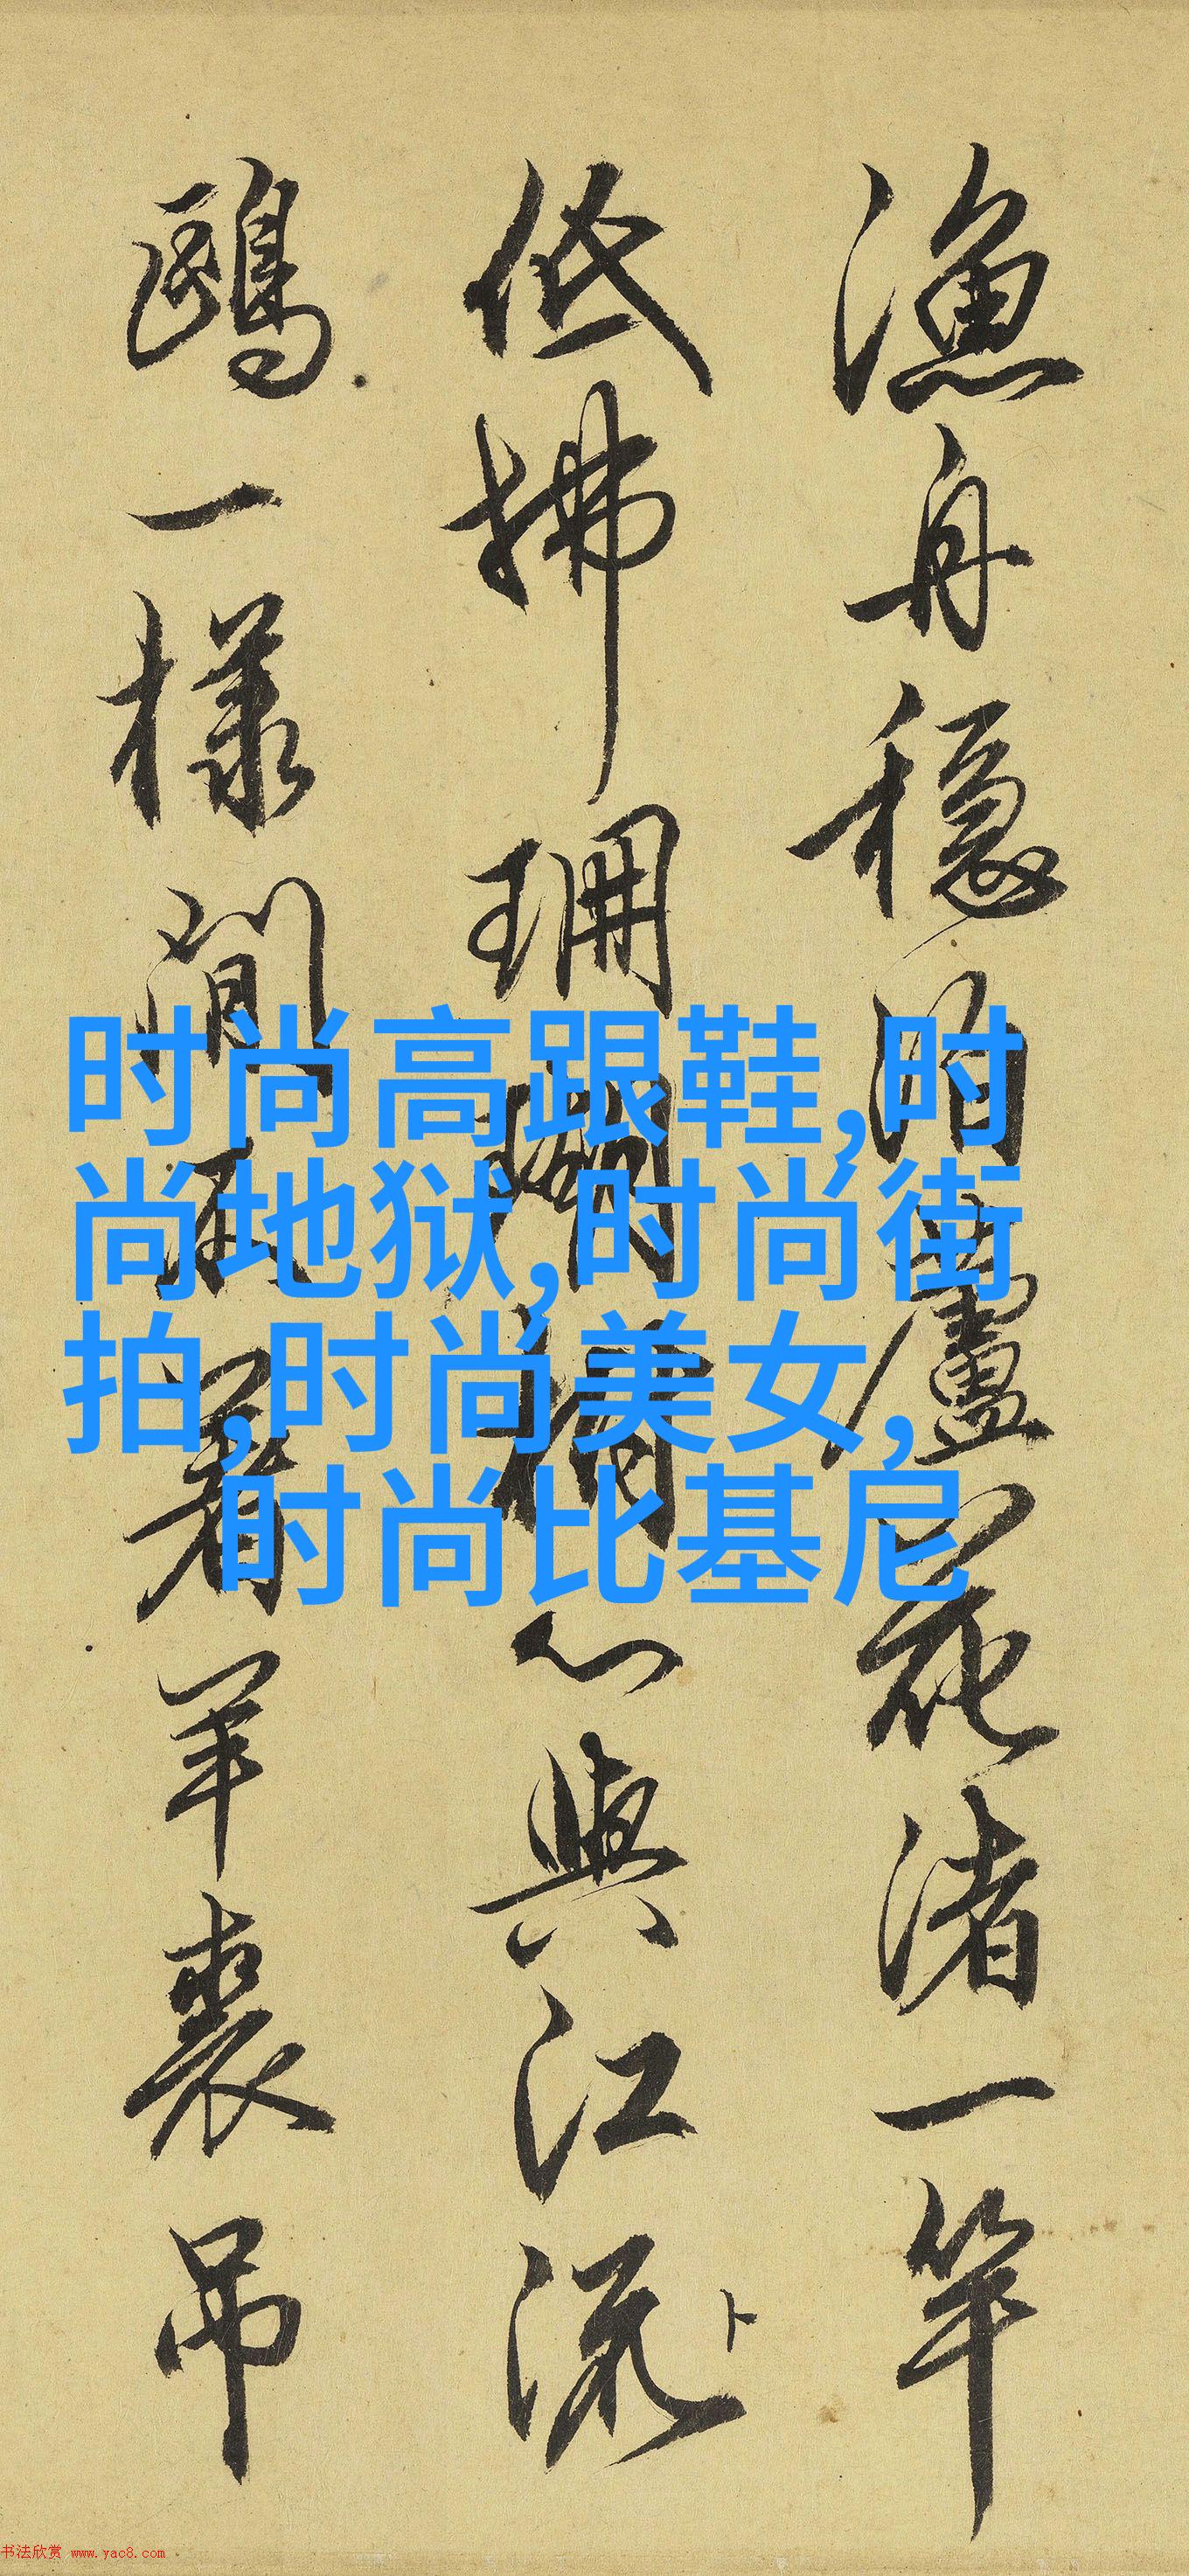 漁舟穩泊蘆花渚一竿
低拂珊瑚心與江流卜
鷗一樣閒不著羊裘吊
时尚高跟鞋,时
尚地狱,时尚街
拍,时尚美女,
时尚比基尼
书法欣赏 www.yac8.com